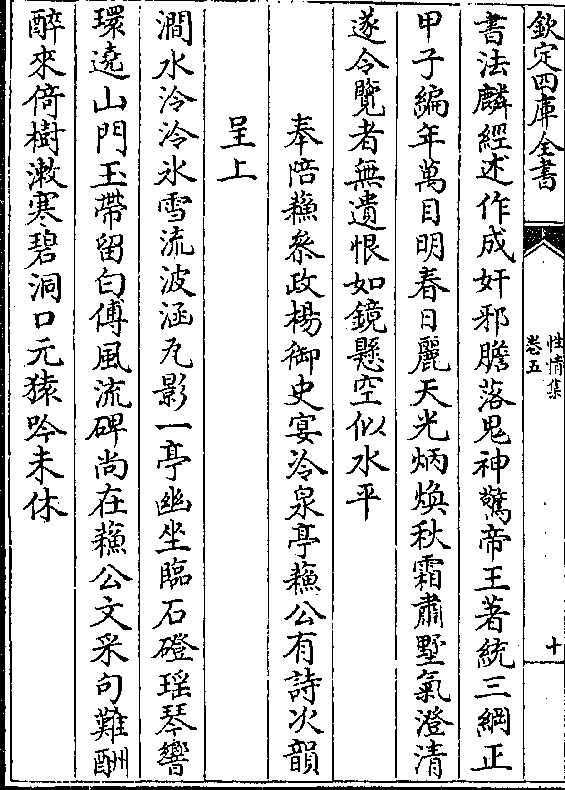 欽定四庫全書
性情集
卷五
十
書法麟經述作成奸邪膽落鬼神驚帝王著統三綱正
甲子編年萬目明春日麗天光炳煥秋霜肅墅氣澄清
遂令覽者無遺恨如鏡懸空似水平
奉陪蘓叅政楊御史宴冷泉亭蘓公有詩次韻
呈上
澗水泠泠氷雪流波涵九影一亭幽坐臨石磴瑶琴響
環遶山門玉帶留白傅風流碑尚在蘓公文采句難酬
醉來倚樹潄寒碧洞口元猿吟未休